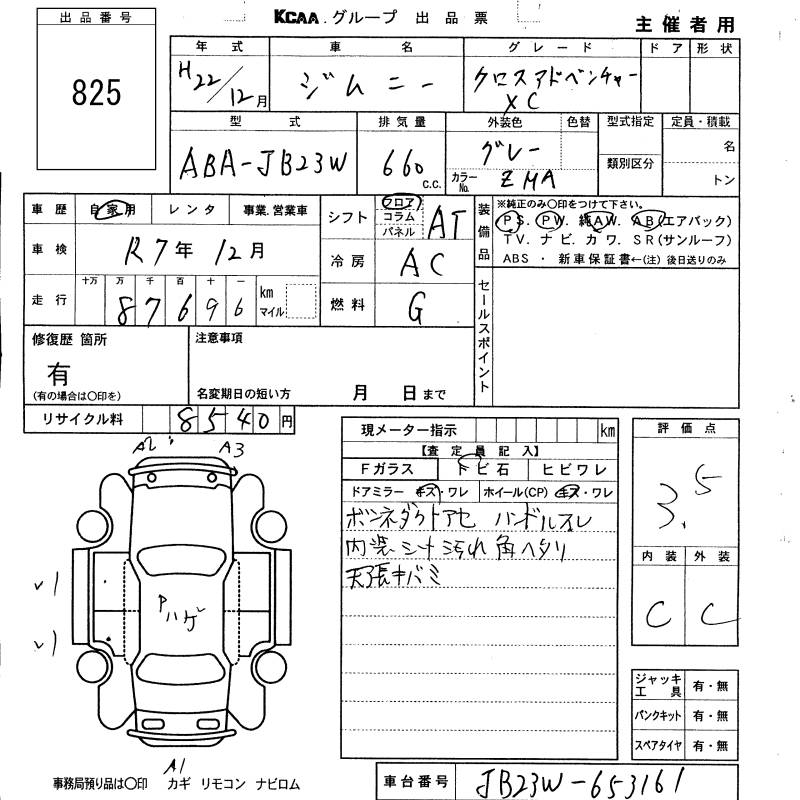 出品番号
825
KCAA.グループ 出品票
主催者用
年式 車名 グレード ドア 形状
H22/12月 ジムニー クロスアドベンチャー
XC
型式 排気量 外装色 色替 型式指定 定員・積載
ABA-JB23W 660 c.c. グレー 名
カラーNo. ZMA 類別区分 トン
車歴 自家用 レンタ 事業.営業車
車検 R7年 12月
走行 十万 万 千 百 十 一
87696 km マイル
シフト フロア コラム パネル AT
冷房 AC
燃料 G
装備品 ※純正のみ〇印をつけて下さい。
PS. PW. 純AW. AB(エアバック)
TV. ナビ. カワ. SR(サンルーフ)
ABS ・ 新車保証書←(注)後日送りのみ
セールスポイント
修復歴 箇所
有
(有の場合は〇印を)
注意事項
名変期日の短い方 月 日まで
リサイクル料 8540円
現メーター指示 km
【査定員記入】
Fガラス トビ石 ヒビワレ
ドアミラー キズ・ワレ ホイール(CP) キズ・ワレ
ボンネダクトアセ ハンドルスレ
内装シート汚れ角ヘタリ
天張キバミ
評価点
3.5
内装 外装
C C
A2 A3
√1
√1
Pハゲ
A1
ジャッキ工具 有・無
パンクキット 有・無
スペアタイヤ 有・無
事務局預り品は〇印 カギ リモコン ナビロム
車台番号 JB23W-653161